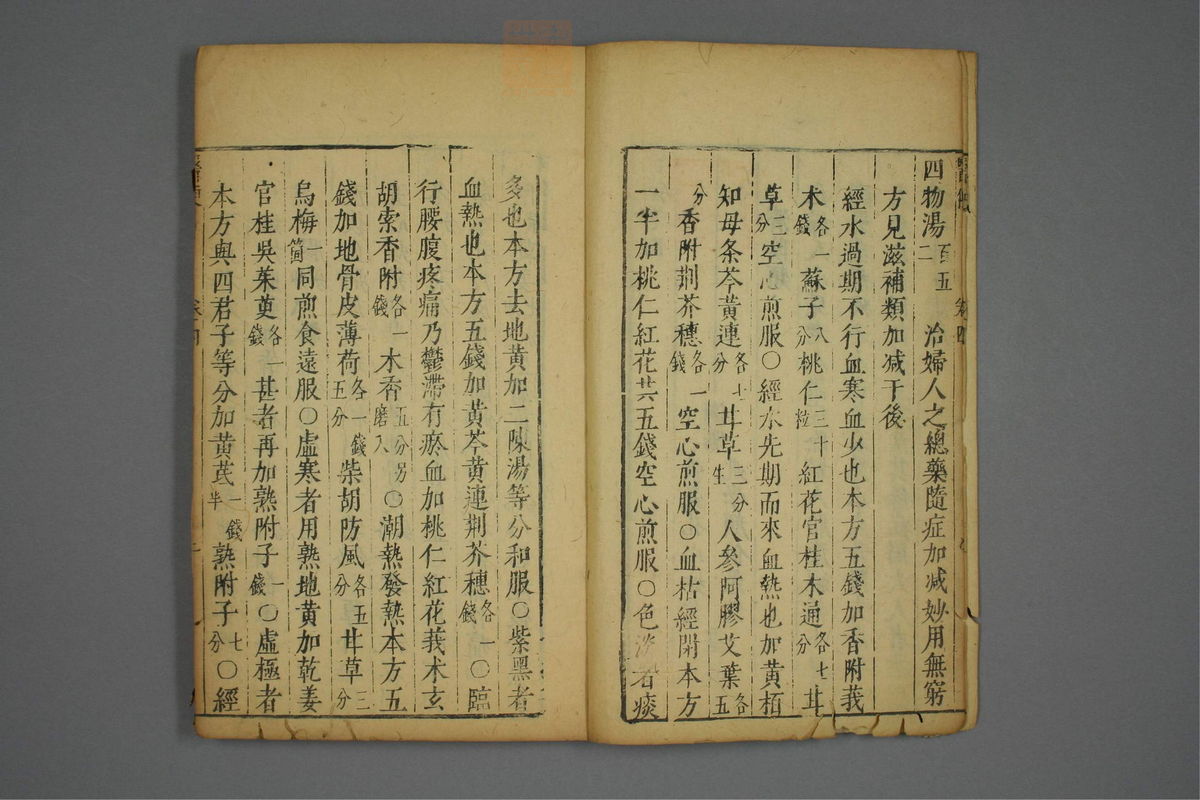 四物湯百五二　治婦人之總藥隨症加減妙用無窮
方見滋補類加減于後
經水過期不行血寒血少也本方五錢加香附莪
木各一錢蘇子八分桃仁三十粒紅花官桂木通各七分甘
草三分空心煎服○經水先期而來血熱也加黃栢
知母条芩黃連各七分甘草三分生人參阿膠艾葉各五
分香附荆芥穗各一錢空心煎服○血枯經閉本方
一半加桃仁紅花共五錢空心煎服○色淡者痰
多也本方去地黃加二陳湯等分和服○紫黑者
血熱也本方五錢加黃芩黃連荆芥穗各一錢○臨
行腰腹疼痛乃鬱滯有瘀血加桃仁紅花莪术玄
胡索香附各一錢木香五分另磨入○潮熱發熱本方五
錢加地骨皮薄荷各一錢五分柴胡防風各五分甘草三分
烏梅一箇同煎食遠服○虛寒者用熟地黃加乾姜
官桂吳茱萸各一錢甚者再加熟附子一錢○虛極者
本方與四君子等分加黃芪一錢半熟附子七分○經